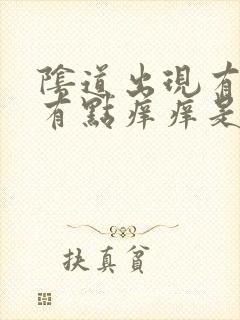 陰道出現有
有點痒痒是
扶真貧